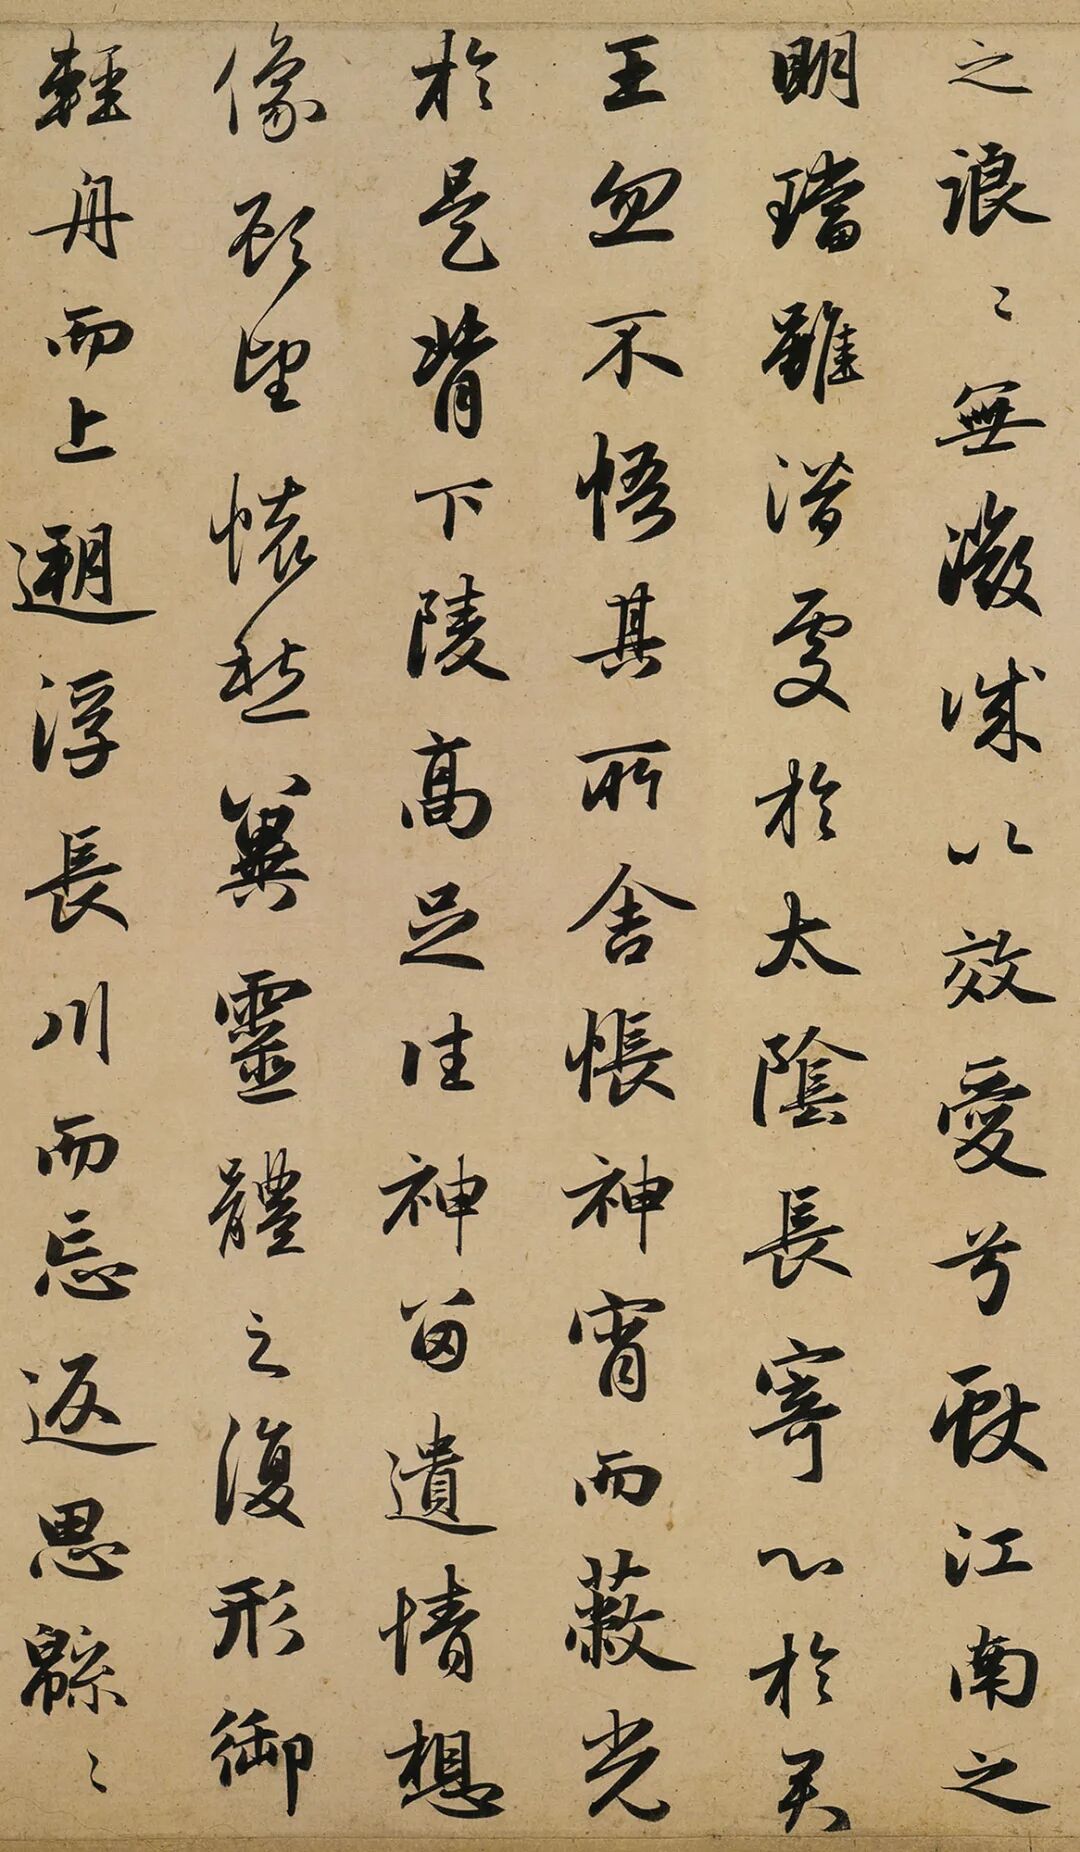 之浪〻無㣲誠以效愛兮獻江南之
明璫雖潛處於太陰長寄心於君
王忽不悟其所舍悵神宵而蔽光
於是背下陵高足往神留遺情想
像顧望懷愁冀靈體之復形御
輕舟而上遡浮長川而忘返思緜〻